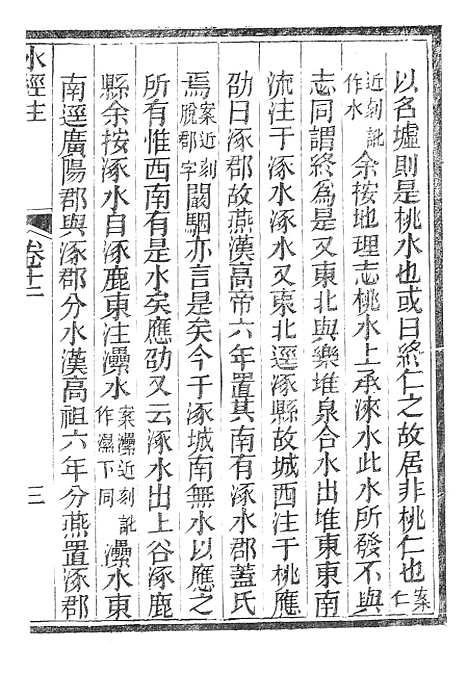 以名墟則是桃水也或曰終仁之故居非桃仁也案仁
近刻訛作水余按地理志桃水上承淶水此水所發不與
志同謂終為是又東北與樂堆泉合水出堆東東南
流注于涿水涿水又東北逕涿縣故城西注于桃應
劭曰涿郡故燕漢高帝六年置其南有涿水郡蓋氏
焉案近刻脫郡字闞駰亦言是矣今于涿城南無水以應之
所有惟西南有是水矣應劭又云涿水出上谷涿鹿
縣余按涿水自涿鹿東注㶟水案㶟近刻訛作濕下同㶟水東
南逕廣陽郡與涿郡分水漢高祖六年分燕置涿郡
水經注
卷十二
三